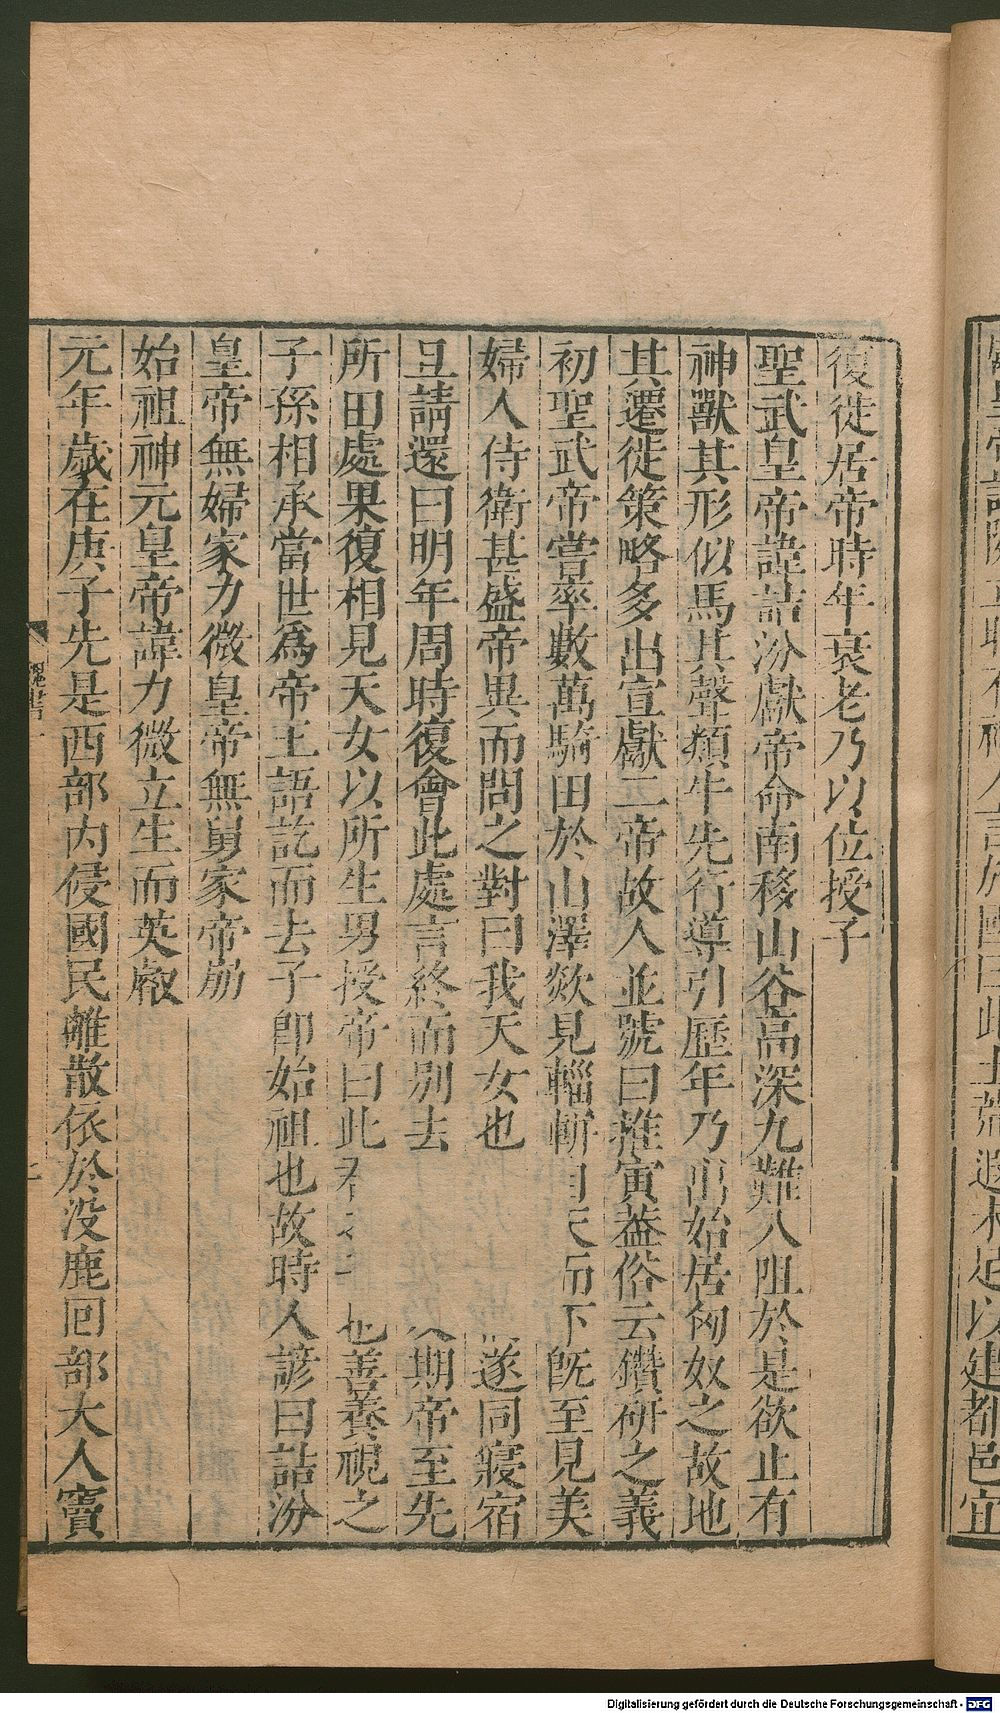 復徙居帝時年衰老乃以位授子
聖武皇帝諱詰汾獻帝命南移山谷高深九難八阻於是欲止有
神獸其形似馬其聲類牛先行導引歷年乃出始居匈奴之故地
其遷徙策略多出宣獻二帝故人並號曰推寅葢俗云鑽硏之義
初聖武帝嘗率數萬騎田於山澤欻見輜軿自天而下旣至見美
婦人侍衛甚盛帝異而問之對曰我天女也 遂同寢宿
旦請還曰明年周時復會此處言終而别去 期帝至先
所田處果復相見天女以所生男授帝曰此君 也善養視之
子孫相承當世爲帝王語訖而去子卽始祖也故時人諺曰詰汾
皇帝無婦家力微皇帝無舅家帝崩
始祖神元皇帝諱力微立生而英叡
元年歲在庚子先是西部内侵國民離散依於没鹿回部大人竇
魏書一
Digitalisierung gefördert durch die Deutsche Forschungsgemeinschaft - DFG